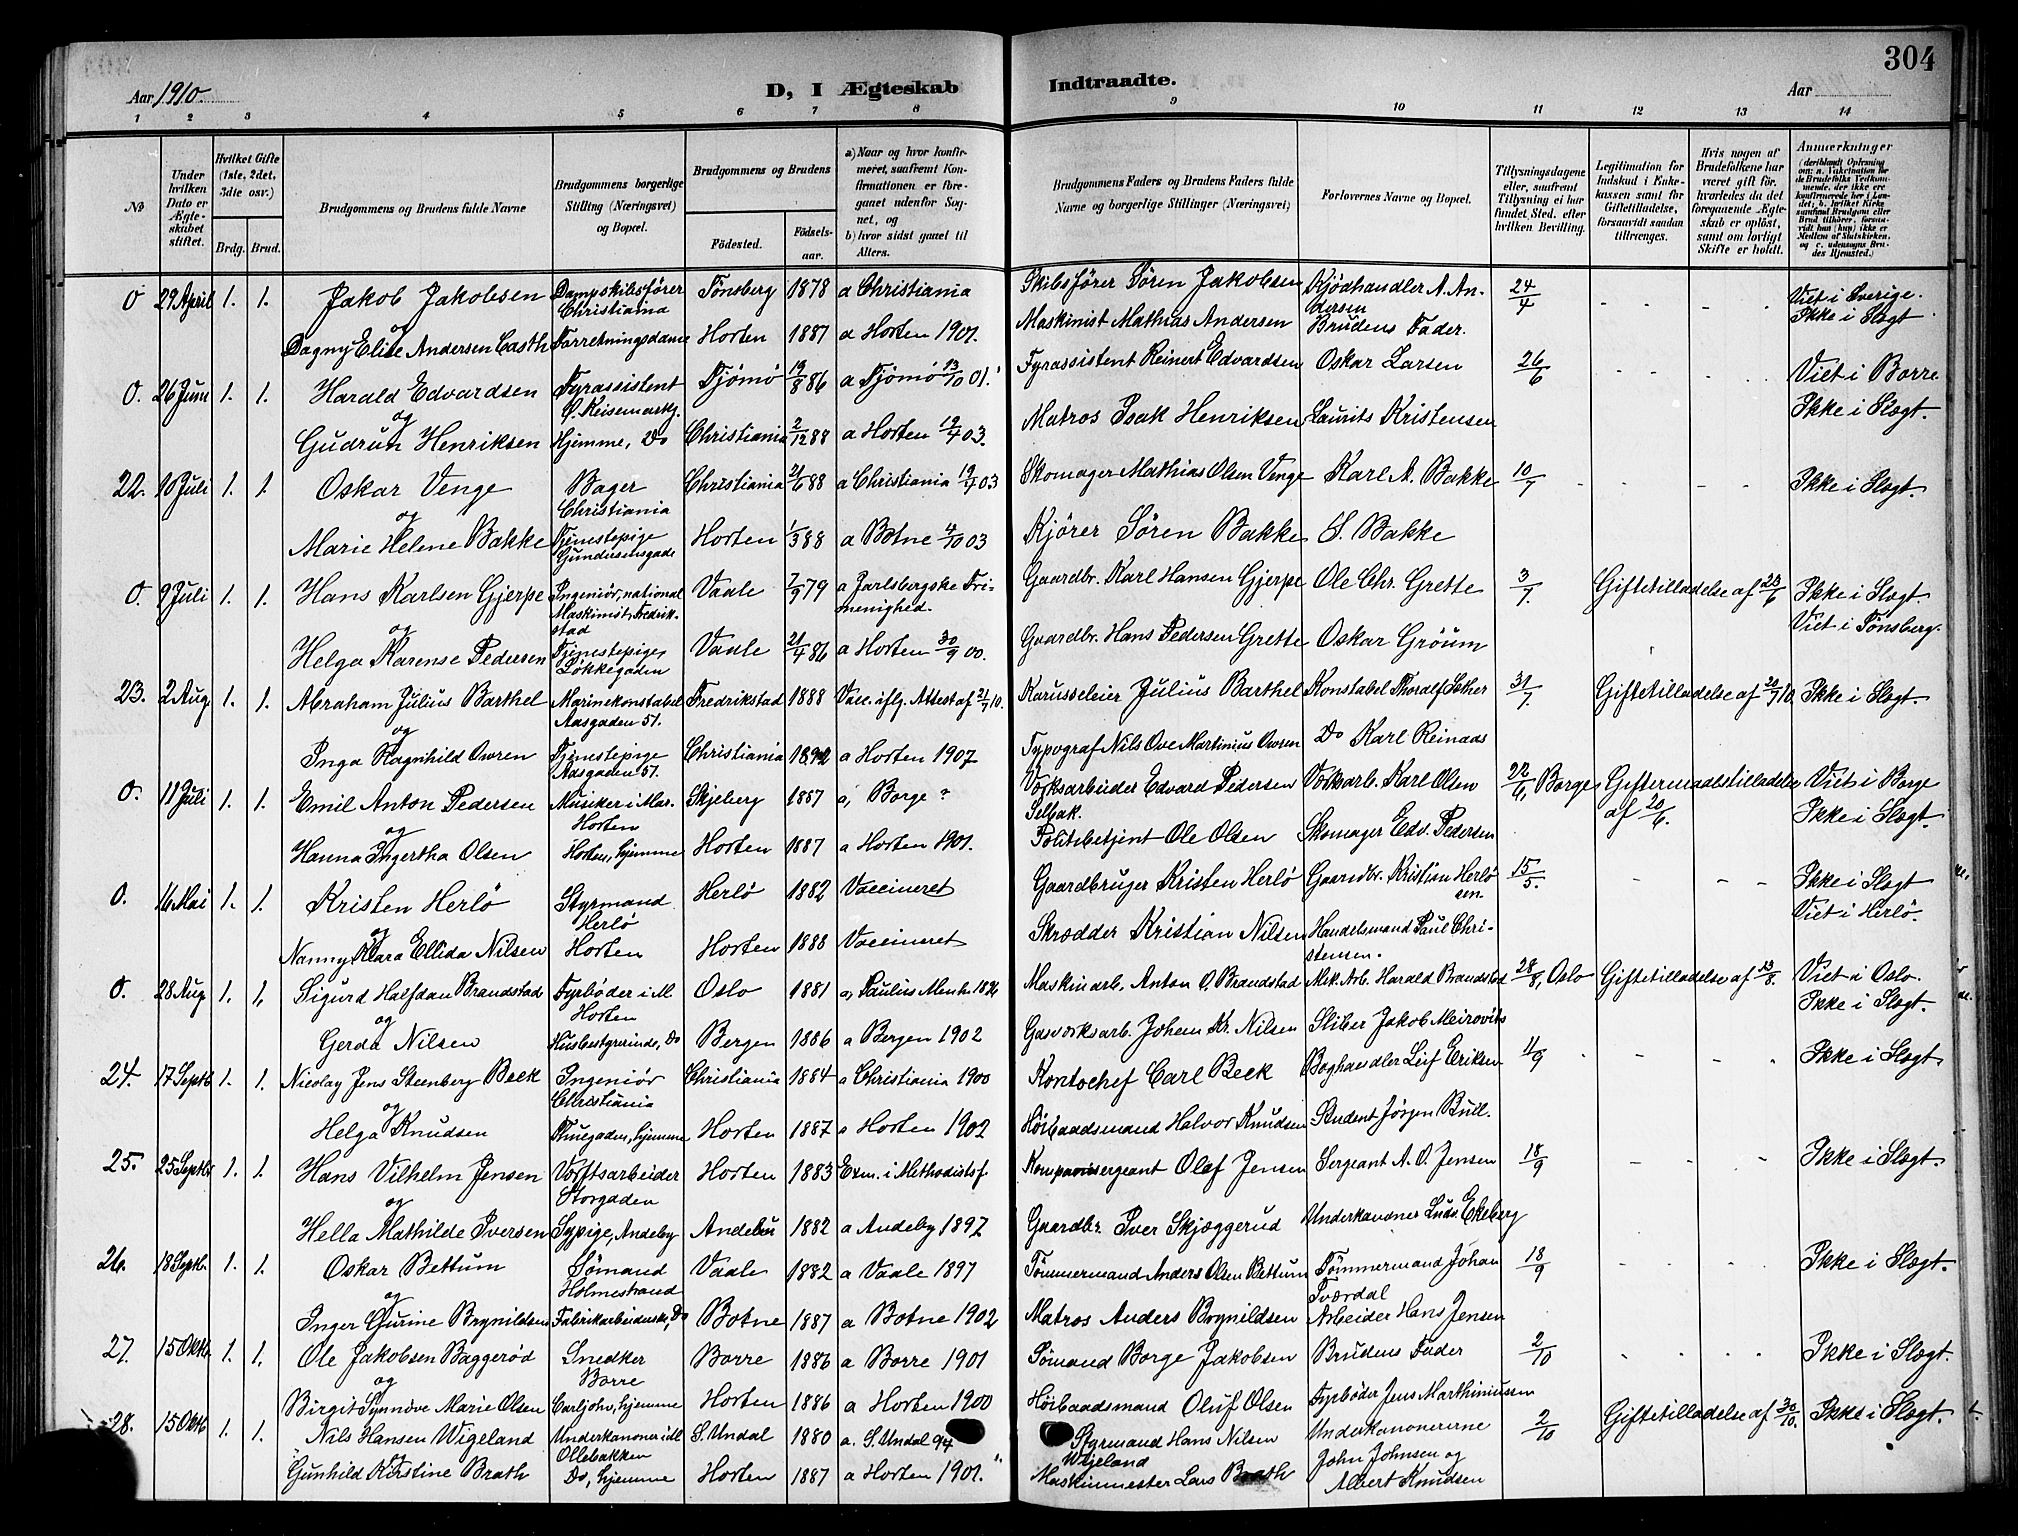 304
Aar 1910.
D, I Ægteskab Indtraadte.
Aar
1 2 3 4 5 6 7 8 9 10 11 12 13 14
№
Under hvilken Dato er Ægteskabet stiftet.
Hvilket Gifte (1ste, 2det, 3die osv.)
Brdg. Brud.
Brudgommens og Brudens fulde Navne
Brudgommens borgerlige Stilling (Næringsvei) og Bopæl.
Brudgommens og Brudens
Fødested.
Fødselsaar.
a) Naar og hvor konfirmeret, saafremt Konfirmationen er foregaaet udenfor Sognet, og
b) hvor sidst gaaet til Alters.
Brudgommens Faders og Brudens Faders fulde Navne og borgerlige Stillinger (Næringsvei)
Forlovernes Navne og Bopæl.
Tillysningsdagene eller, saafremt Tillysning ei har fundet Sted, efter hvilken Bevilling.
Legitimation for Indskud i Enkekassen samt for Giftetilladelse, forsaavidt saadan tiltrænges.
Hvis nogen af Brudefolkene har været gift før, hvorledes da det foregaaende Ægteskab er opløst, samt om lovligt Skifte er holdt.
Anmærkninger
0 29 April 1. 1. Jakob Jakobsen Dampskibsfører Christiania Tønsberg 1878 a Christiania Skibsfører Søren Jakobsen Kjødhandler A. Andersen 24/4 Viet i Sverige. Ikke i Slægt
og
Dagny Elise Andersen Casth Forretningsdame Horten 1887 a Horten 1901. Maskinist Mathias Andersen Brudens Fader.
0. 26 Juni 1. 1. Harald Edvardsen Fyrassistent Tjømø 19/8 86 a Tjømø 13/10 01. Fyrassistent Reinert Edvardsen Oskar Larsen 26/6 Viet i Borre Ikke i Slægt.
og
Gudrun Henriksen Hjemme, Do Christiania 2/12 88 a Horten 19/4 03. Matros Isak Henriksen Laurits Kristensen
22. 10 Juli 1. 1. Oskar Venge Bager Christiania Christiania 21/6 88 a Christiania 19/4 03 Skomager Mathias Olsen Venge Karl A. Bakke 10/7 Ikke i Slægt.
og
Marie Helene Bakke Tjenestepige Gundersensgade Horten 1/3 88 a Botne 4/10 03 Kjører Søren Bakke S. Bakke
0. 9 Juli 1. 1. Hans Karlsen Gjerpe Ingeniør, national Maskinist, Fredrikstad Vaale 7/9 79 a Jarlsbergske Frimenighed. Gaardbr. Karl Hansen Gjerpe Ole Chr. Grette 3/7 Giftetilladelse af 23/6 Ikke i Slægt. Viet i Tønsberg.
og
Helga Karense Pedersen Tjenestepige, Løkkegaden Vaale 21/4 86 a Horten 30/9 00. Gaardbr. Hans Pedersen Grette Oskar Grøum
23. 2 Aug 1. 1. Abraham Julius Barthel Marinekonstabel Aasgaden 51. Fredrikstad 1888 Vacc. iflg. Attest af 21/7 10. Karusseleier Julius Barthel Konstabel Thoralf Sether 31/7. Giftetilladelse af 20/7 10. Ikke i Slægt.
og
Inga Ragnhild Owren Tjenestepige Aasgaden 51. Christiania 1892 a Horten 1907 Typograf Nils Ove Martinius Owren Do Karl Reinaas
0. 11 Juli 1. 1. Emil Anton Pedersen Musiker i Mar. Horten Skjeberg 1887 a, Borge ? Værksarbeider Edvard Pedersen Selbak. Værksarb. Karl Olsen 22/6, Borge Giftermaalstilladelse af 20/6. Viet i Borge Ikke i Slægt.
og
Hanna Ingertha Olsen Horten, hjemme Horten 1887 a Horten 1901. Politibetjent Ole Olsen Skomager Edv. Pedersen
0. 16 Mai 1. 1. Kristen Herlø Styrmand Herlø Herlø 1882 Vaccineret Gaardbruger Kristen Herlø Gaardbr. Kristian Herlø sen. 15/5. Ikke i Slægt Viet i Herlø.
og
Nanny Klara Ellida Nilsen Horten Horten 1888 Vaccineret Skrædder Kristian Nilsen Handelsmand Paul Christensen.
0. 28 Aug 1. 1. Sigurd Halfdan Brandstad Fyrbøder i M. Horten Oslo 1881 a, Paulus Menh. 1896 Maskinarb. Anton O. Brandstad Mek. Arb. Harald Brandstad 28/8, Oslo Giftetilladelse af 23/8. Viet i Oslo. Ikke i Slægt.
og
Gerda Nilsen Husbestyrerinde, Do Bergen 1886 a Bergen 1902 Gasværksarb. Johan Kr. Nilsen Sliber Jakob Meirovits
24. 17 Septb 1. 1. Nicolay Jens Steenberg Beck Ingeniør Christiania Christiania 1884 a Christiania 1900 Kontochef Carl Beck Boghandler Leif Eriksen 11/9 Ikke i Slægt
og
Helga Knudsen Thuegaden, hjemme Horten 1887 a Horten 1902 Høibaadsmand Halvor Knudsen Student Jørgen Bull.
25. 25 Septbr 1. 1. Hans Vilhelm Jensen Værftsarbeider Storgaden Horten 1883 Exm. i Methodistsf. Kompanisergeant Olaf Jensen Sergeant A. O. Jensen 18/9 Ikke i Slægt.
og
Hella Mathilde Iversen Sypige, Andeby Andebu 1882 a Andeby 1897 Gaardbr. Iver Skjæggerud Underkanoner Ludv. Ekeberg
26. 18 Septb. 1. 1. Oskar Bettum Sømand Holmestrand Vaale 1882 a Vaale 1897 Tømmermand Anders Olsen Bettum Tømmermand Johan Tværdal 18/9 Ikke i Slægt.
og
Inger Gurine Brynildsen Fabrikarbeiderske, Do Botne 1887 a Botne 1902 Matros Anders Brynildsen Arbeider Hans Jensen
27. 15 Oktb. 1. 1. Ole Jakobsen Baggerød Snedker Borre Borre 1886 a Borre 1901 Sømand Borge Jakobsen Brudens Fader 2/10 Ikke i Slægt.
og
Birgit Synnøve Marie Olsen Carljohn, hjemme Horten 1886 a Horten 1900 Høibaadsmand Oluf Olsen Fyrbøder Jens Marthiniussen
28. 15 Oktb 1. 1. Nils Hansen Wigeland Underkanoner i M. Ollebakken S. Undal 1880 a. S. Undal 94 Styrmand Hans Nilsen Wigeland Underkanonererne 2/10 Giftetilladelse af 30/10. Ikke i Slægt.
Gunhild Kirstine Brath Do, hjemme Horten 1887 a Horten 1901. Maskinmester Lars Brath John Johnsen og Albert Knudsen